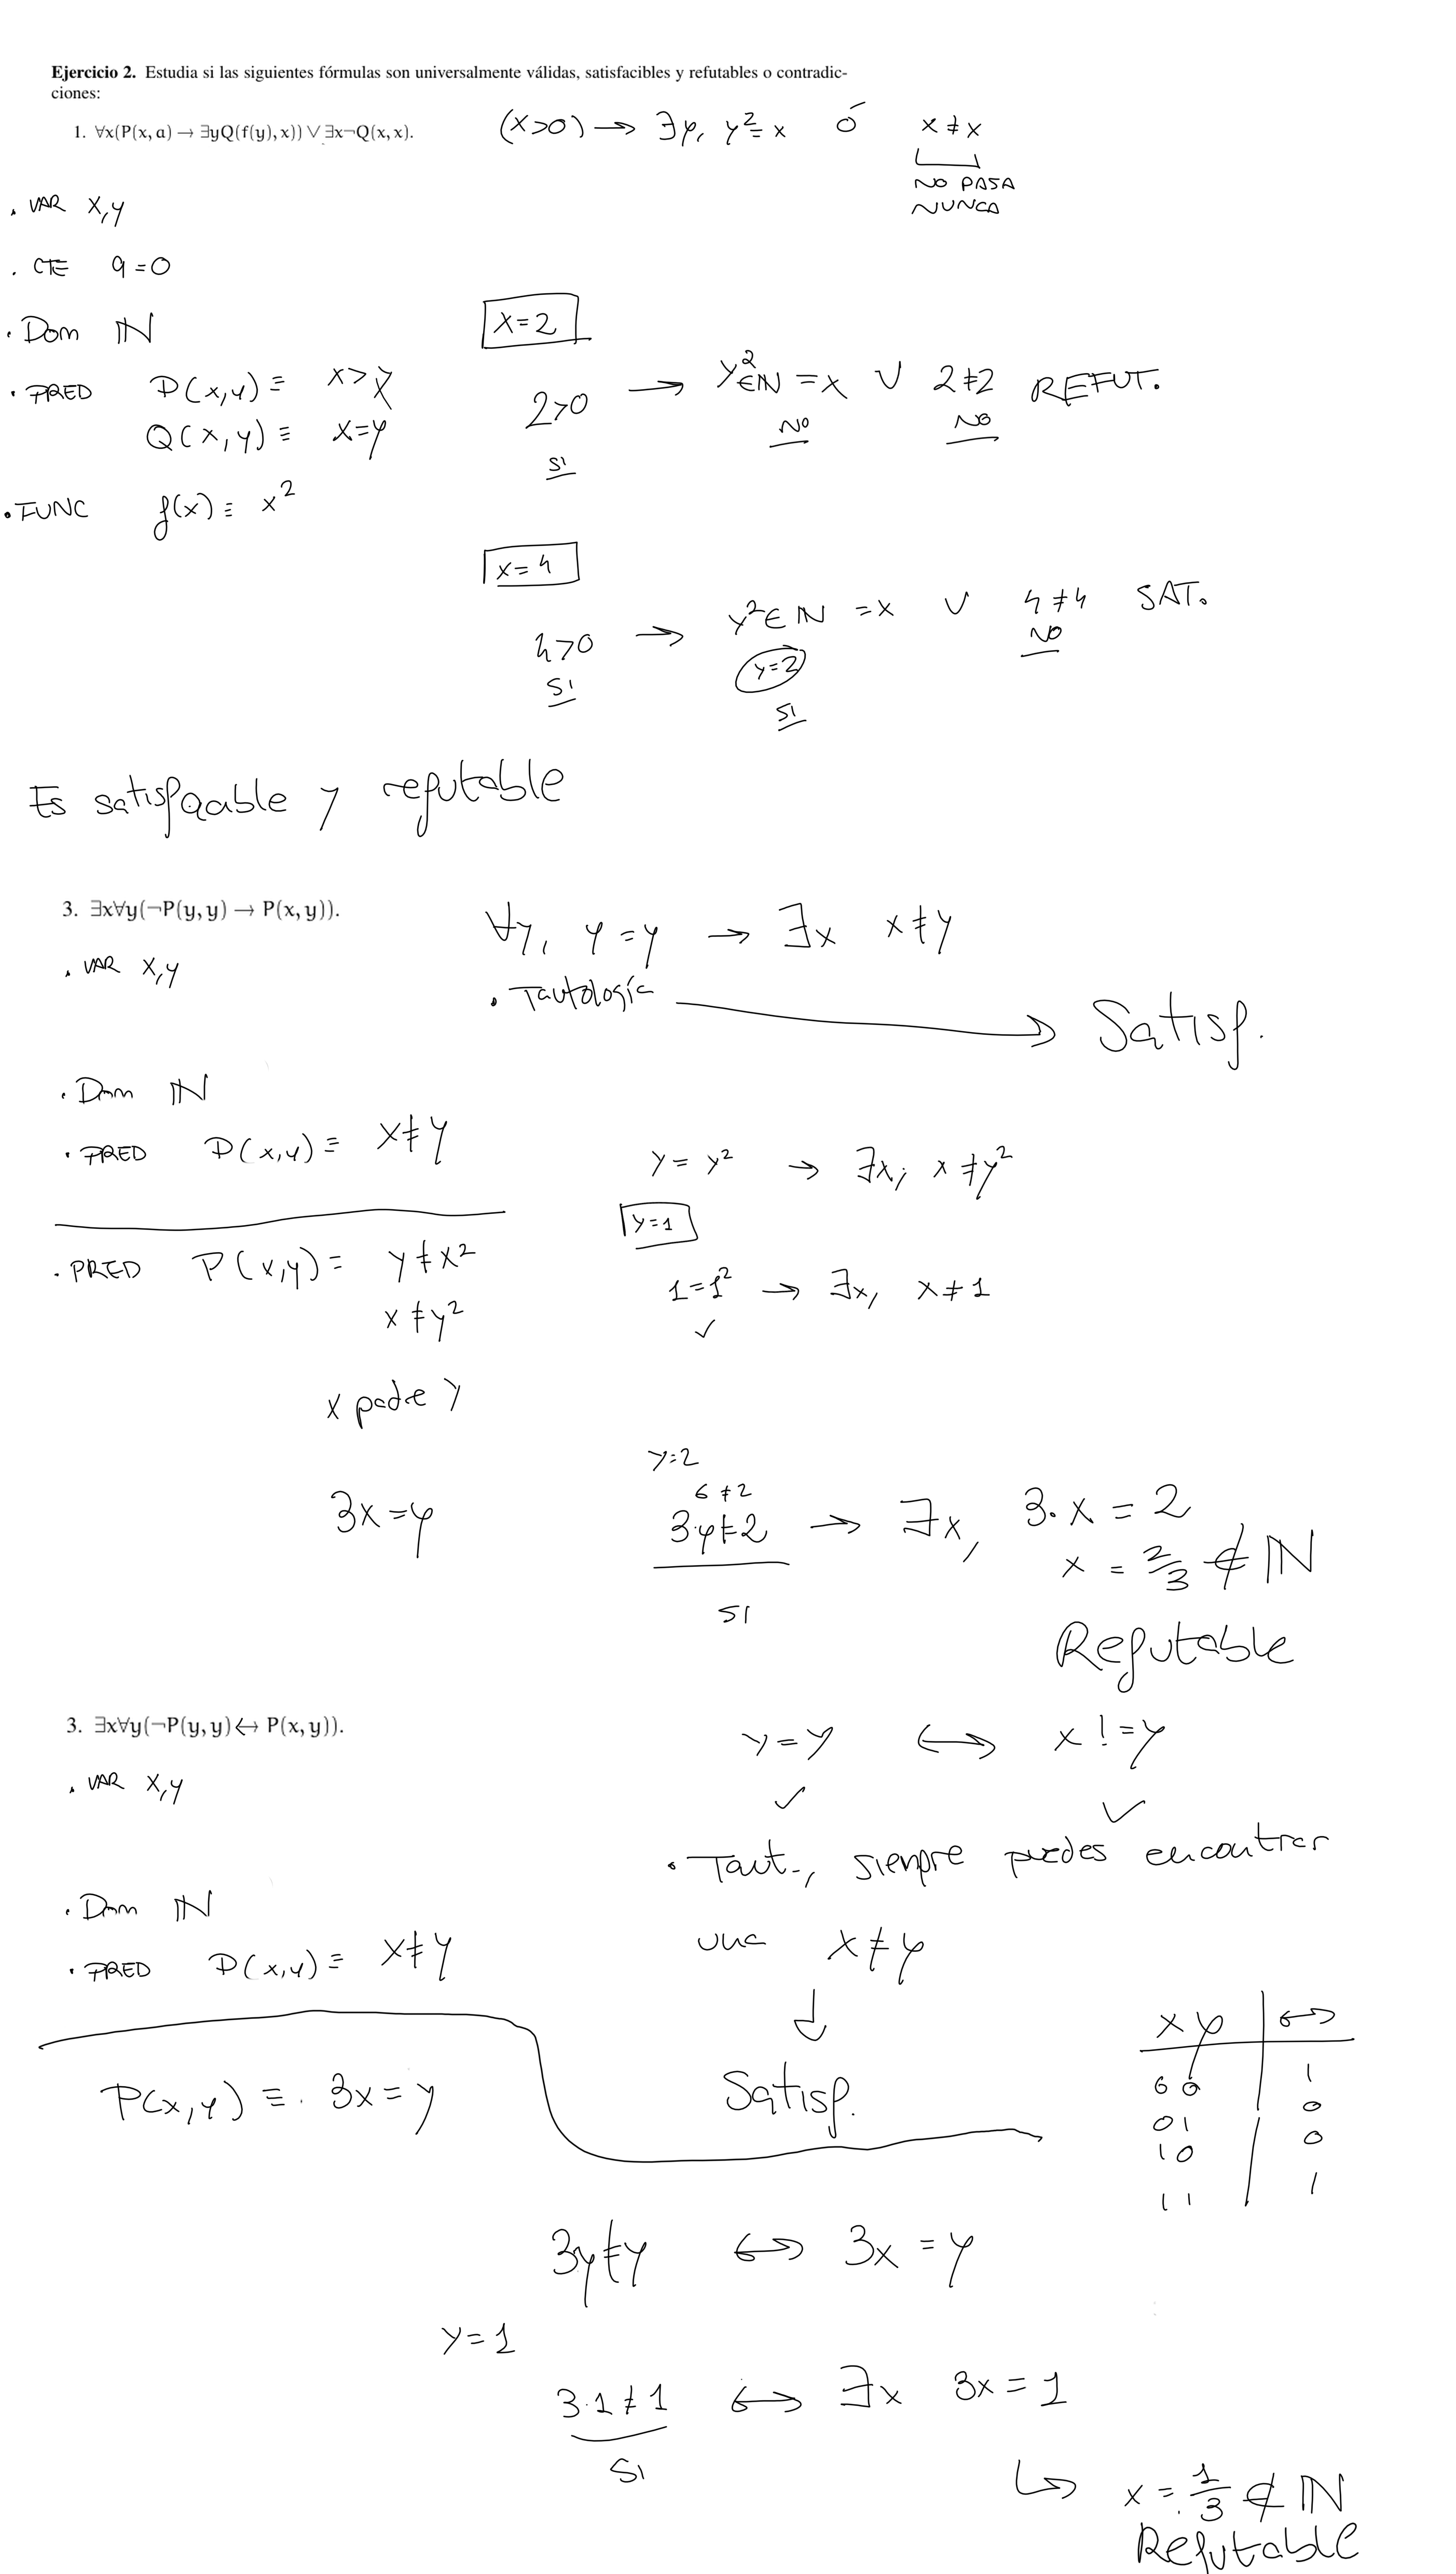 Ejercicio 2. Estudia si las siguientes fórmulas son universalmente válidas, satisfacibles y refutables o contradic-
ciones:
1. ∀x(P(x, a) → ∃yQ(f(y), x)) ∨ ∃x¬Q(x, x).
(x>0) → ∃y, y²=x ó x ≠ x
NO PASA
NUNCA
. VAR x,y
. CTE a=0
. Dom ℕ
. PRED P(x,y) ≡ x>y
Q(x,y) ≡ x=y
. FUNC f(x) ≡ x²
x=2
2>0 → y²∈ℕ = x ∨ 2≠2 REFUT.
SI NO NO
x=4
4>0 → y²∈ℕ = x ∨ 4≠4 SAT.
SI y=2 NO
SI
Es satisfacable y refutable
3. ∃x∀y(¬P(y, y) → P(x, y)).
∀y, y=y → ∃x x≠y
. VAR x,y
. Tautología → Satisf.
. Dom ℕ
. PRED P(x,y) ≡ x≠y
y = y² → ∃x, x≠y²
y=1
. PRED P(x,y) = y≠x²
1=1² → ∃x, x≠1
✓
x≠y²
x padre y
y=2
6≠2
3x=y
3·y≠2 → ∃x, 3·x=2
SI
x = 2/3 ∉ ℕ
Refutable
3. ∃x∀y(¬P(y, y) ↔ P(x, y)).
y=y ↔ x!=y
✓ ✓
. VAR x,y
. Taut., siempre puedes encontrar
una x≠y
. Dom ℕ
. PRED P(x,y) ≡ x≠y
↓
Satisf.
x y | ↔
0 0 | 1
0 1 | 0
1 0 | 0
1 1 | 1
P(x,y) ≡ 3x=y
3y≠y ↔ 3x=y
y=1
3·1≠1 ↔ ∃x 3x=1
SI
↳ x = 1/3 ∉ ℕ
Refutable